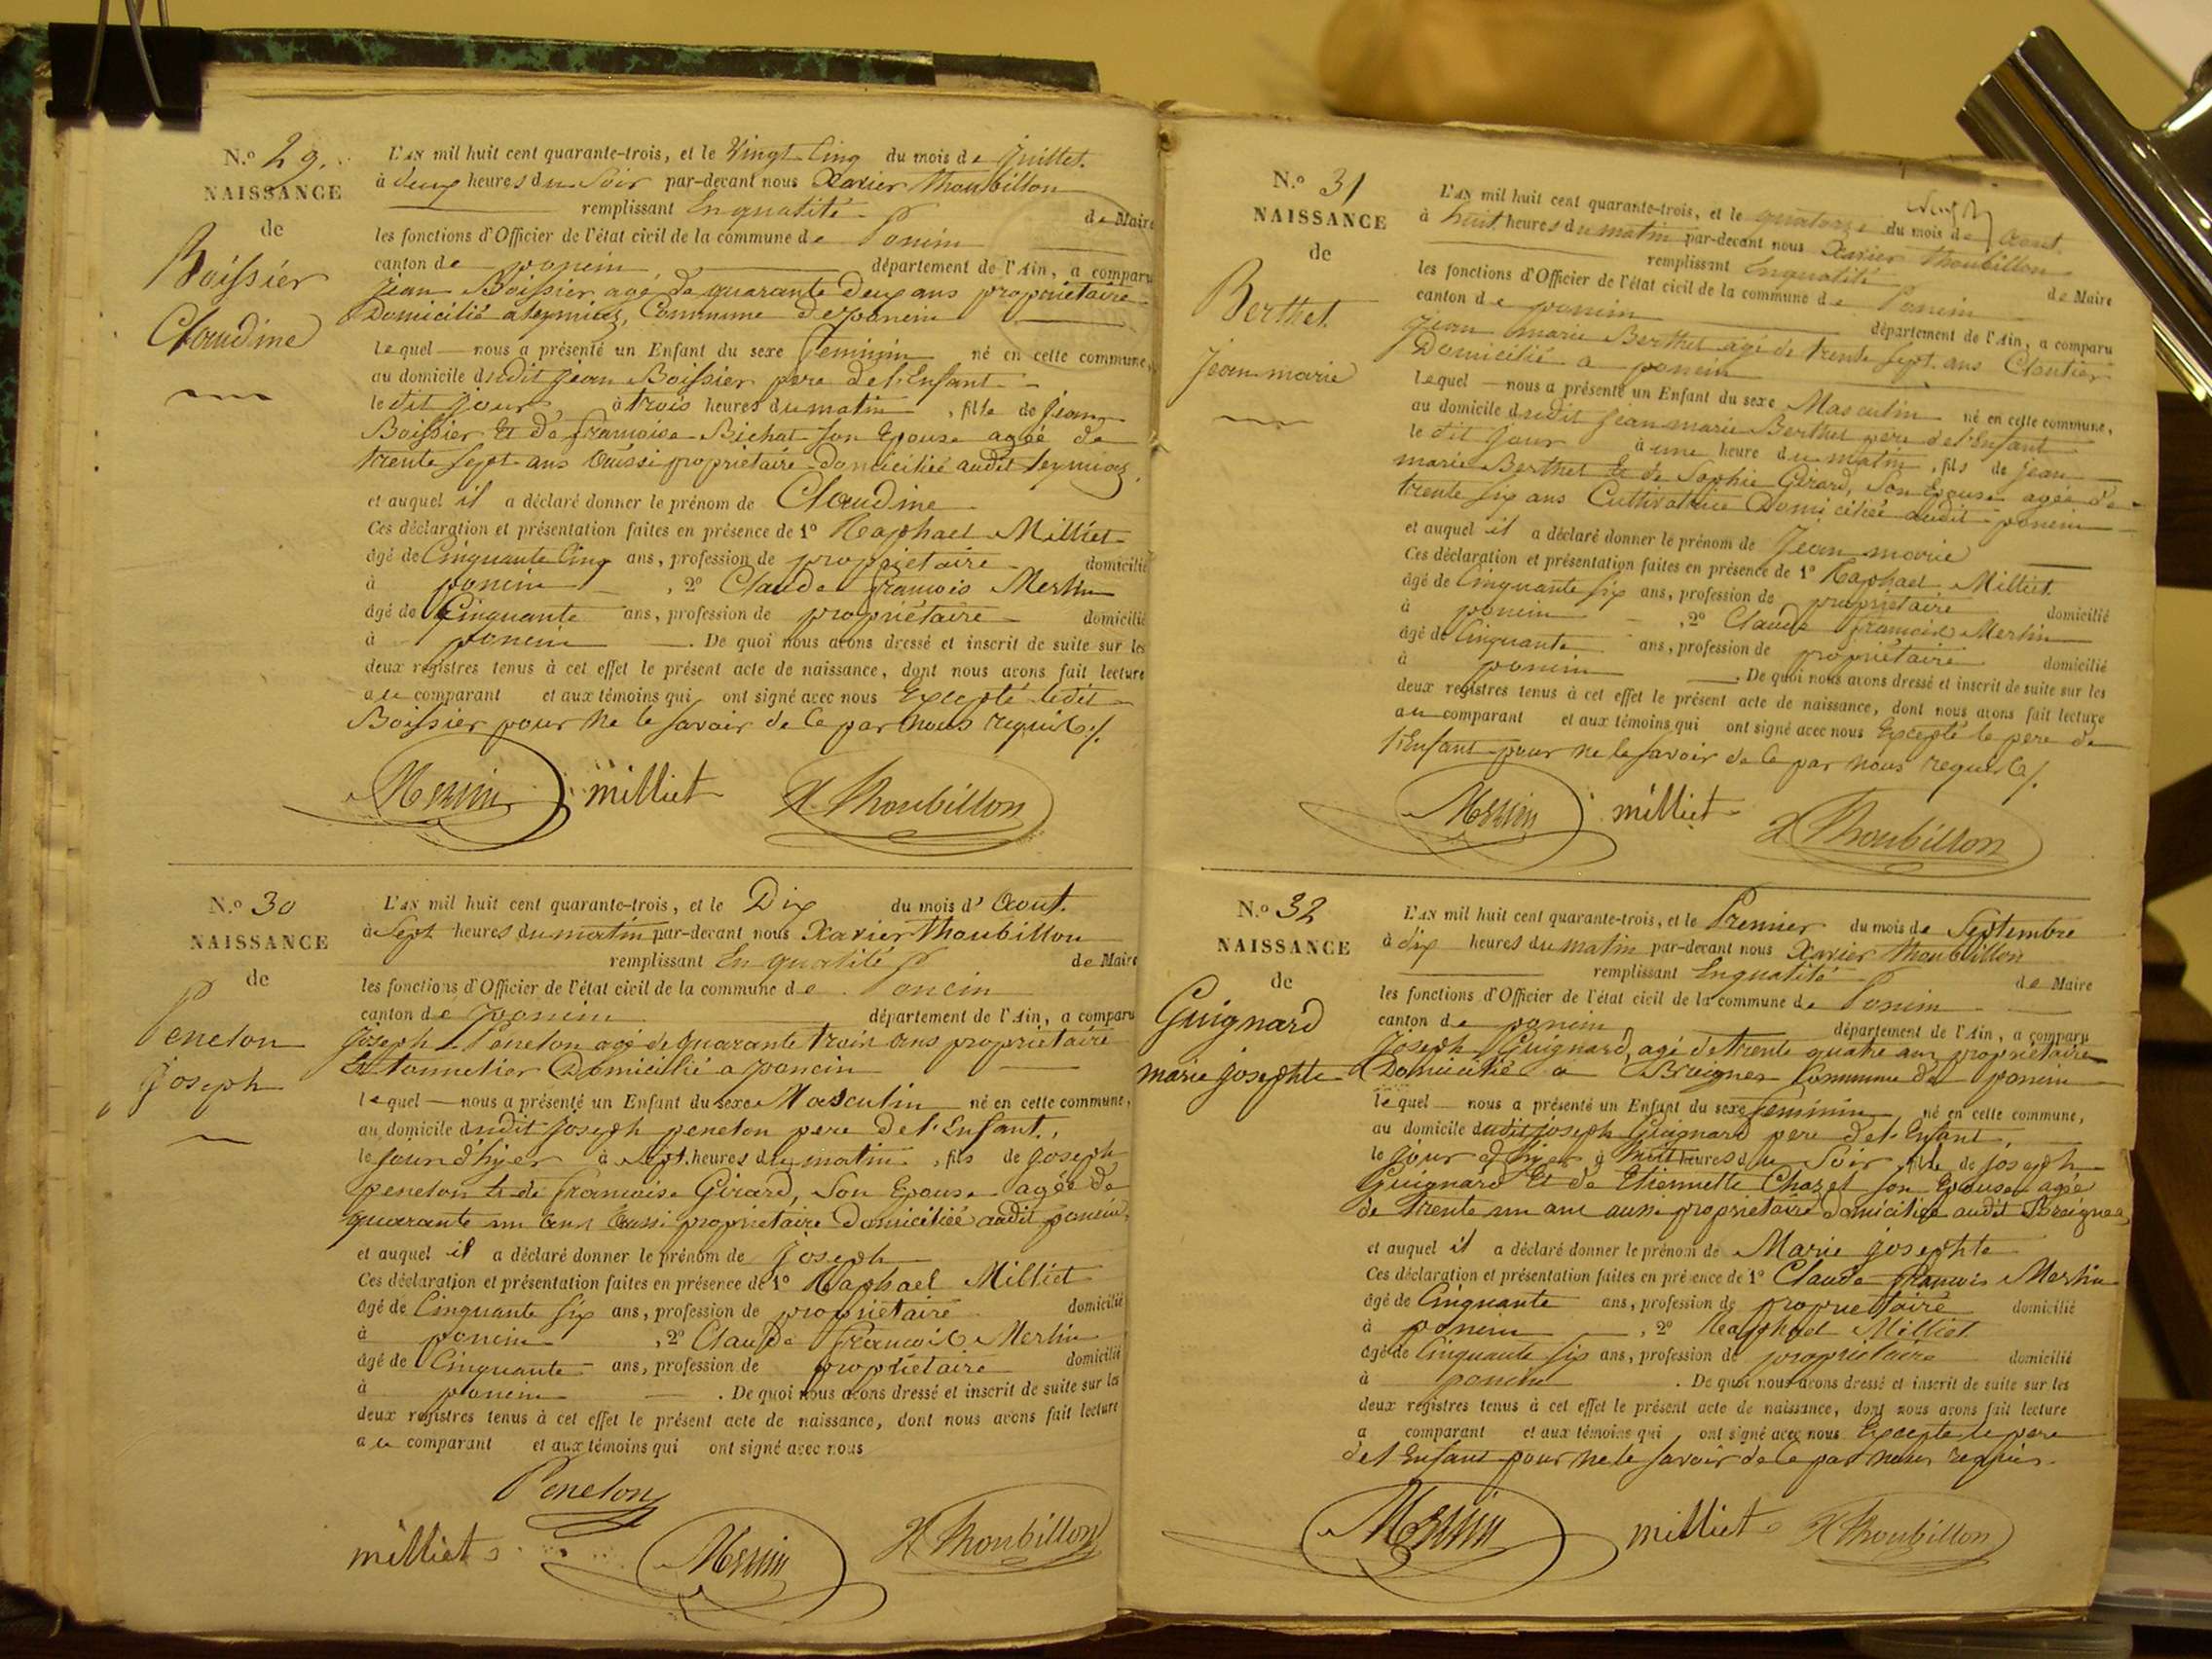 N.° 29.
NAISSANCE
de
Boissier
Claudine
L'AN mil huit cent quarante-trois, et le Vingt Cinq du mois de Juillet.
à deux heures du Soir par-devant nous Xavier Thoubillon
remplissant En qualité de Maire
les fonctions d'Officier de l'état civil de la commune de Poncin
canton de poncin département de l'Ain, a comparu
Jean Boissier agé de quarante deux ans propriétaire
Domicilié a leymiaz, Commune de poncin
lequel nous a présenté un Enfant du sexe feminin né en cette commune,
au domicile dudit Jean Boissier pere de l'Enfant
le dit jour à trois heures du matin, fille de Jean
Boissier Et de francoise Bichat son Epouse agée de
trente sept ans aussi propriétaire domiciliée audit leymiaz.
et auquel il a déclaré donner le prénom de Claudine
Ces déclaration et présentation faites en présence de 1° Raphael Milliet
âgé de Cinquante Cinq ans, profession de propriétaire domicilié
à poncin, 2° Claude francois Merlin
âgé de Cinquante ans, profession de propriétaire domicilié
à poncin. De quoi nous avons dressé et inscrit de suite sur les
deux registres tenus à cet effet le présent acte de naissance, dont nous avons fait lecture
au comparant et aux témoins qui ont signé avec nous Excepté ledit
Boissier pour ne le savoir de ce par nous requis ./.
Merlin milliet X Thoubillon
N.° 30
NAISSANCE
de
Peneton
Joseph
L'AN mil huit cent quarante-trois, et le Dix du mois d' Aout.
à Sept heures du matin par-devant nous Xavier Thoubillon
remplissant En qualité de Maire
les fonctions d'Officier de l'état civil de la commune de Poncin
canton de poncin département de l'Ain, a comparu
Joseph Peneton agé de quarante trois ans propriétaire
Et tonnelier Domicilié a poncin
lequel nous a présenté un Enfant du sexe Masculin né en cette commune,
au domicile dudit Joseph peneton pere de l'Enfant,
le jour d'hyer à sept heures du matin, fils de Joseph
peneton Et de francoise Girard, Son Epouse agée de
quarante un ans aussi propriétaire domiciliée audit poncin,
et auquel il a déclaré donner le prénom de Joseph
Ces déclaration et présentation faites en présence de 1° Raphael Milliet
âgé de Cinquante six ans, profession de propriétaire domicilié
à poncin, 2° Claude francois Merlin
âgé de Cinquante ans, profession de propriétaire domicilié
à poncin. De quoi nous avons dressé et inscrit de suite sur les
deux registres tenus à cet effet le présent acte de naissance, dont nous avons fait lecture
au comparant et aux témoins qui ont signé avec nous
Peneton
milliet Merlin X Thoubillon
N.° 31
NAISSANCE
de
Berthet
Jean marie
L'AN mil huit cent quarante-trois, et le quatorze du mois de Aout.
à huit heures du matin par-devant nous Xavier Thoubillon
remplissant En qualité de Maire
les fonctions d'Officier de l'état civil de la commune de Poncin
canton de poncin département de l'Ain, a comparu
Jean marie Berthet agé de trente sept ans Cloutier
Domicilié a poncin
lequel nous a présenté un Enfant du sexe Masculin né en cette commune,
au domicile dudit Jean marie Berthet pere de l'Enfant
le dit jour à une heure du matin, fils de Jean
marie Berthet Et de Sophie Girard, Son Epouse agée de
trente six ans Cultivatrice Domiciliée audit poncin
et auquel il a déclaré donner le prénom de Jean marie
Ces déclaration et présentation faites en présence de 1° Raphael Milliet
âgé de Cinquante six ans, profession de propriétaire domicilié
à poncin, 2° Claude francois Merlin
âgé de Cinquante ans, profession de propriétaire domicilié
à poncin. De quoi nous avons dressé et inscrit de suite sur les
deux registres tenus à cet effet le présent acte de naissance, dont nous avons fait lecture
au comparant et aux témoins qui ont signé avec nous Excepté le pere de
l'Enfant pour ne le savoir de ce par nous requis ./.
Merlin milliet X Thoubillon
N.° 32
NAISSANCE
de
Guignard
marie josephte
L'AN mil huit cent quarante-trois, et le Premier du mois de Septembre
à dix heures du matin par-devant nous Xavier Thoubillon
remplissant En qualité de Maire
les fonctions d'Officier de l'état civil de la commune de Poncin
canton de poncin département de l'Ain, a comparu
Joseph Guignard, agé de trente quatre ans propriétaire
Domicilié a Breignes Commune de poncin
lequel nous a présenté un Enfant du sexe feminin né en cette commune,
au domicile dudit joseph Guignard pere de l'Enfant,
le jour d'hyer à huit heures du Soir, fille de joseph
Guignard Et de Etiennette Chazet son Epouse agée
de trente un ans aussi propriétaire domiciliée audit Breignes
et auquel il a déclaré donner le prénom de Marie josephte
Ces déclaration et présentation faites en présence de 1° Claude francois Merlin
âgé de Cinquante ans, profession de propriétaire domicilié
à poncin, 2° Raphael Milliet
âgé de Cinquante six ans, profession de propriétaire domicilié
à poncin. De quoi nous avons dressé et inscrit de suite sur les
deux registres tenus à cet effet le présent acte de naissance, dont nous avons fait lecture
a comparant et aux témoins qui ont signé avec nous Excepté le pere
de l'Enfant pour ne le savoir de ce par nous requis.
Merlin milliet X Thoubillon